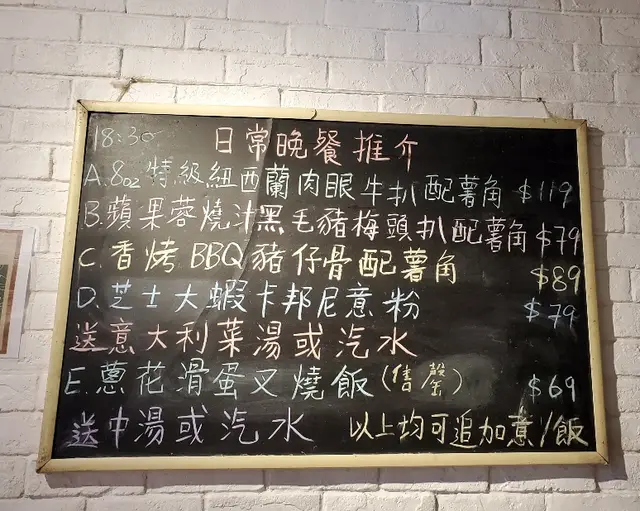 18:30 日常晚餐推介
A. 8oz 特級紐西蘭肉眼牛扒配薯角 $119
B. 蘋果蓉燒汁黑毛豬梅頭扒配薯角 $79
C. 香烤BBQ豬仔骨配薯角 $89
D. 芝士大蝦卡邦尼意粉 $79
送意大利菜湯或汽水
E. 蔥花滑蛋叉燒飯(售罄) $69
送中湯或汽水 以上均可追加意/飯